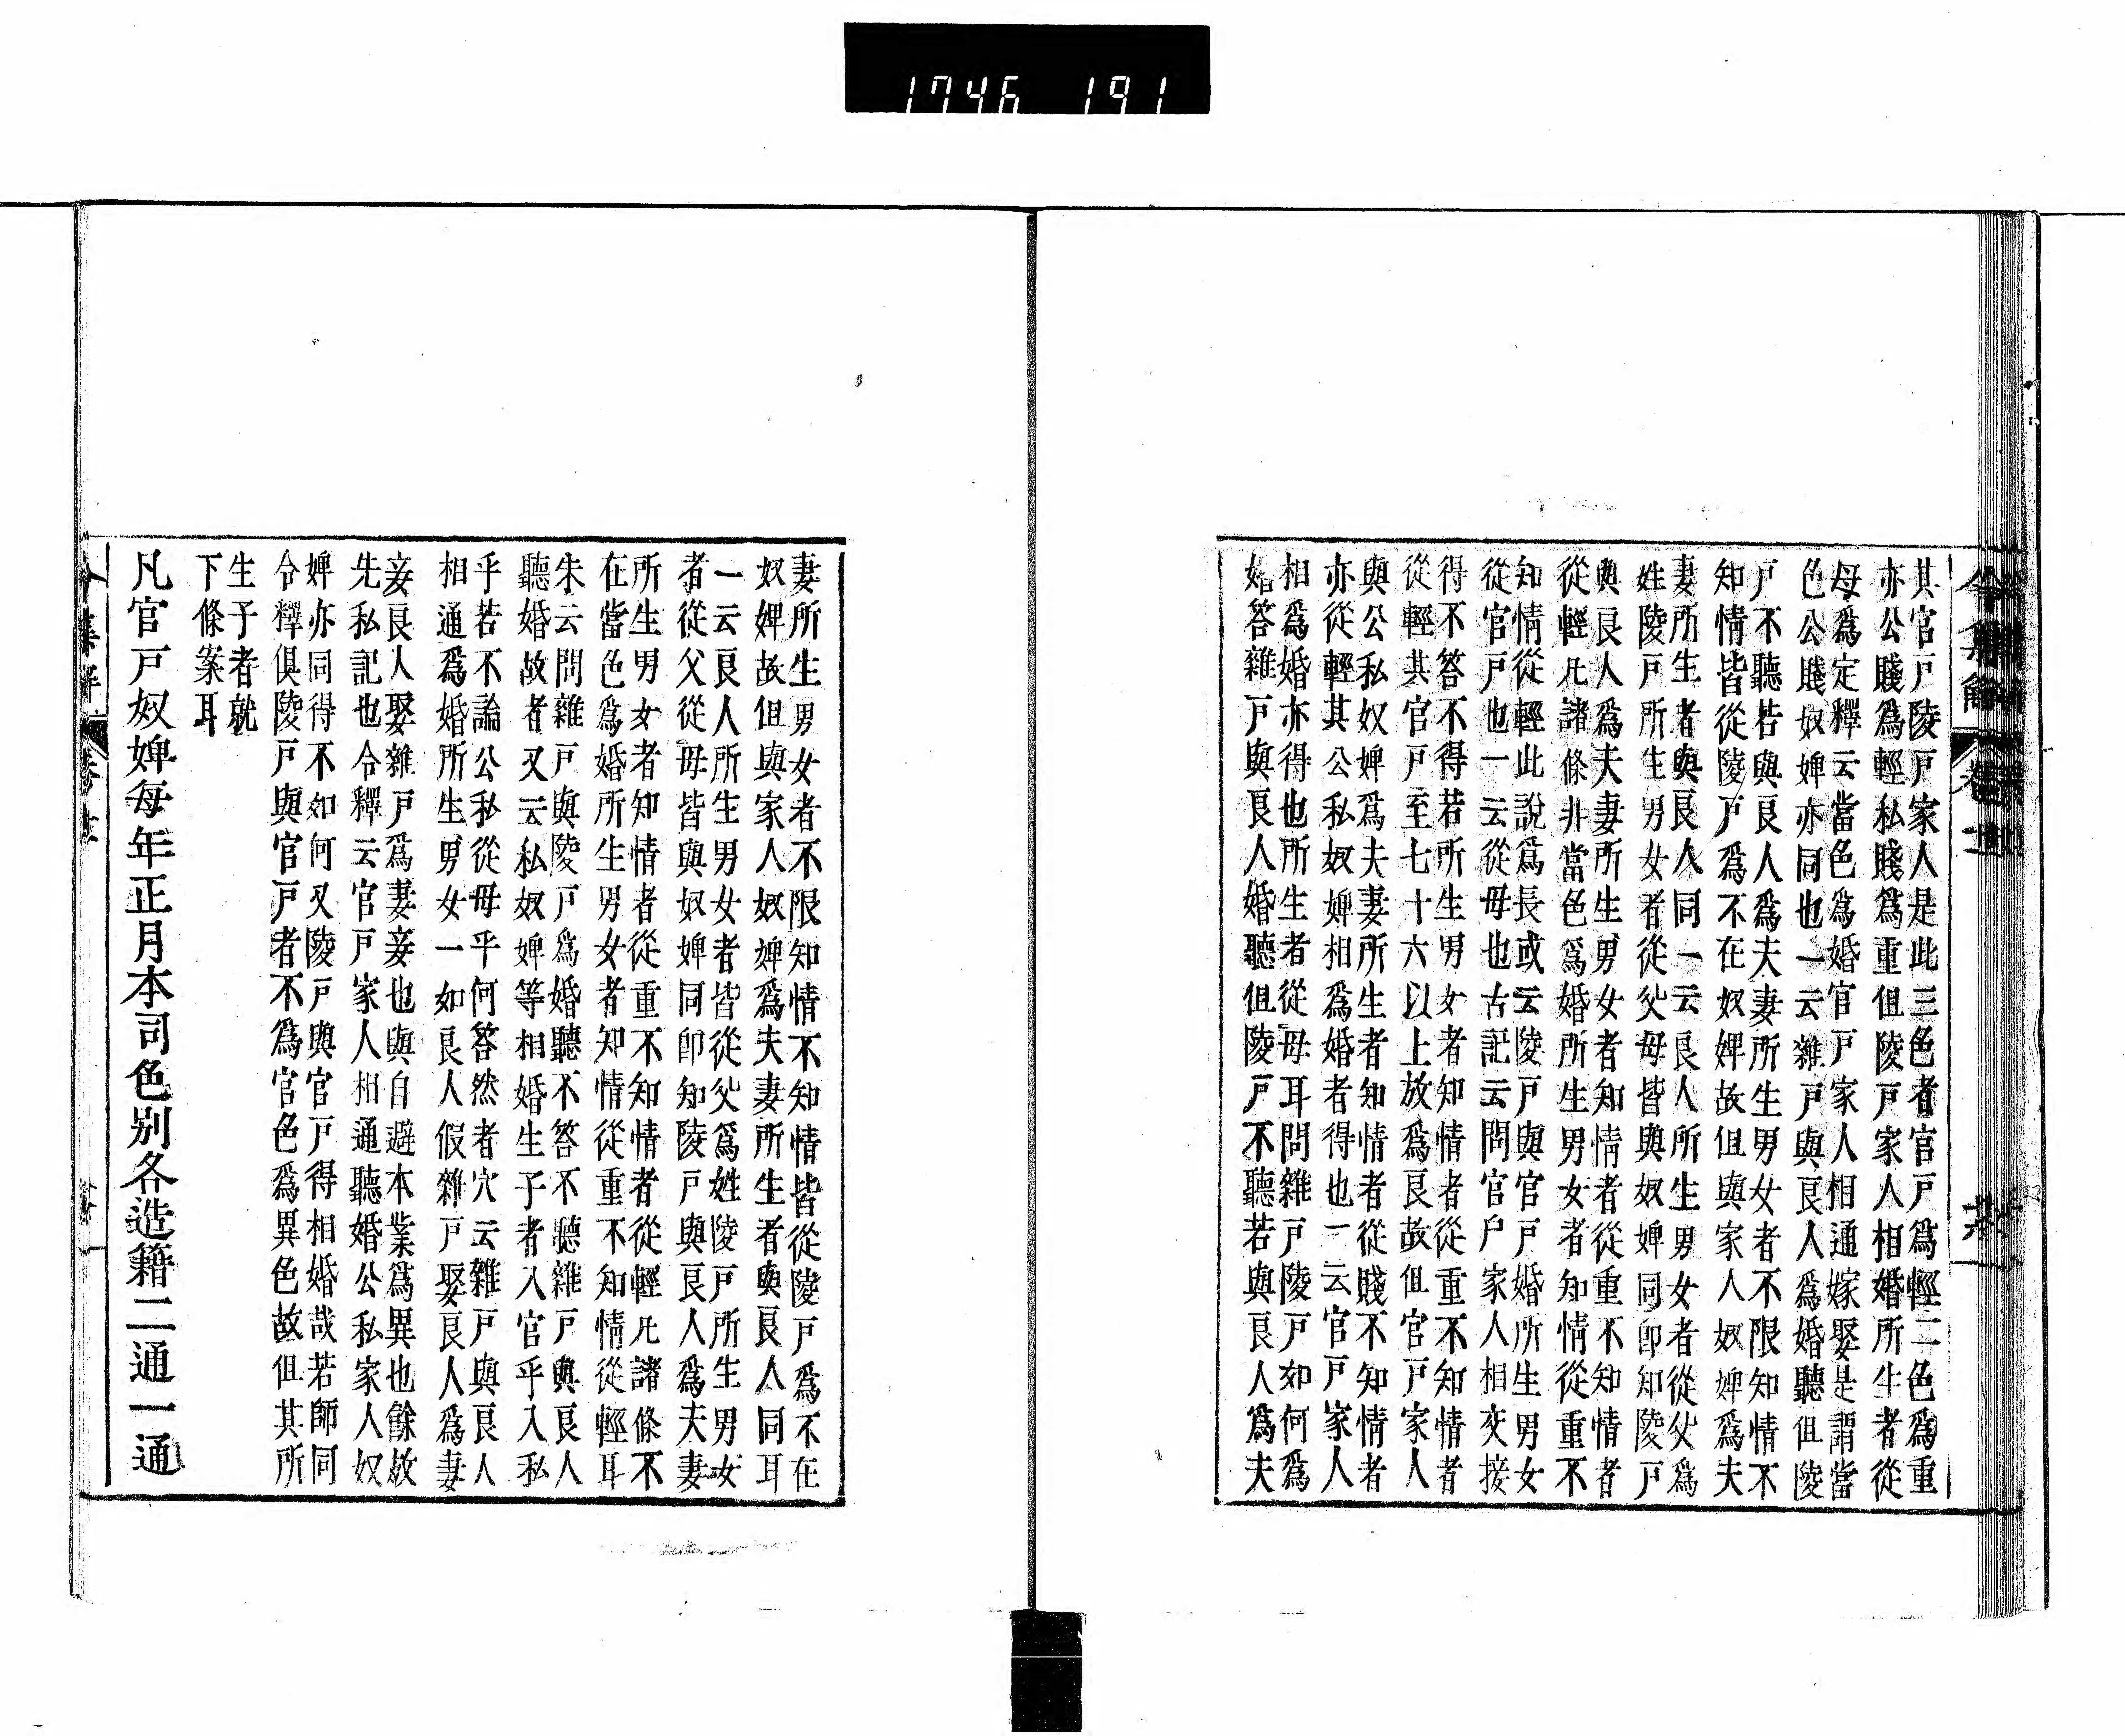 1746 191
其官戸陵戸家人是此三色者官戸爲輕二色爲重
亦公賤爲輕私賤爲重但陵戸家人相婚所生者從
母爲定釋云當色爲婚官戸家人相通嫁娶是謂當
色公賤奴婢亦同也一云雜戸與良人爲婚聽但陵
戸不聽若與良人爲夫妻所生男女者不限知情不
知情皆從陵戸爲不在奴婢故但與家人奴婢爲夫
妻所生者與良人同一云良人所生男女者從父爲
姓陵戸所生男女者從父母皆與奴婢同卽知陵戸
與良人爲夫妻所生男女者知情者從重不知情者
從輕凡諸條非當色爲婚所生男女者知情從重不
知情從輕此說爲長或云陵戸與官戸婚所生男女
從官戸也一云從母也古記云問官戸家人相交接
得不答不得若所生男女者知情者從重不知情者
從輕其官戸至七十六以上放爲良故但官戸家人
與公私奴婢爲夫妻所生者知情者從賤不知情者
亦從輕其公私奴婢相爲婚者得也一云官戸家人
相爲婚亦得也所生者從母耳問雜戸陵戸如何爲
婚答雜戸與良人婚聽但陵戸不聽若與良人爲夫
妻所生男女者不限知情不知情皆從陵戸爲不在
奴婢故但與家人奴婢爲夫妻所生者與良人同耳
一云良人所生男女者皆從父爲姓陵戸所生男女
者從父從母皆與奴婢同卽知陵戸與良人爲夫妻
所生男女者知情者從重不知情者從輕凡諸條不
在當色爲婚所生男女者知情從重不知情從輕耳
朱云問雜戸與陵戸爲婚聽不答不聽雜戸與良人
聽婚故者又云私奴婢等相婚生子者入官乎入私
乎若不論公私從母乎何答然者穴云雜戸與良人
相通爲婚所生男女一如良人假雜戸娶良人爲妻
妾良人娶雜戸爲妻妾也與自避本業爲異也餘放
先私記也令釋云官戸家人相通聽婚公私家人奴
婢亦同得不如何又陵戸與官戸得相婚哉若師同
令釋俱陵戸與官戸者不爲官色爲異色故但其所
生子者就
下條案耳
凡官戸奴婢每年正月本司色別各造籍二通一通